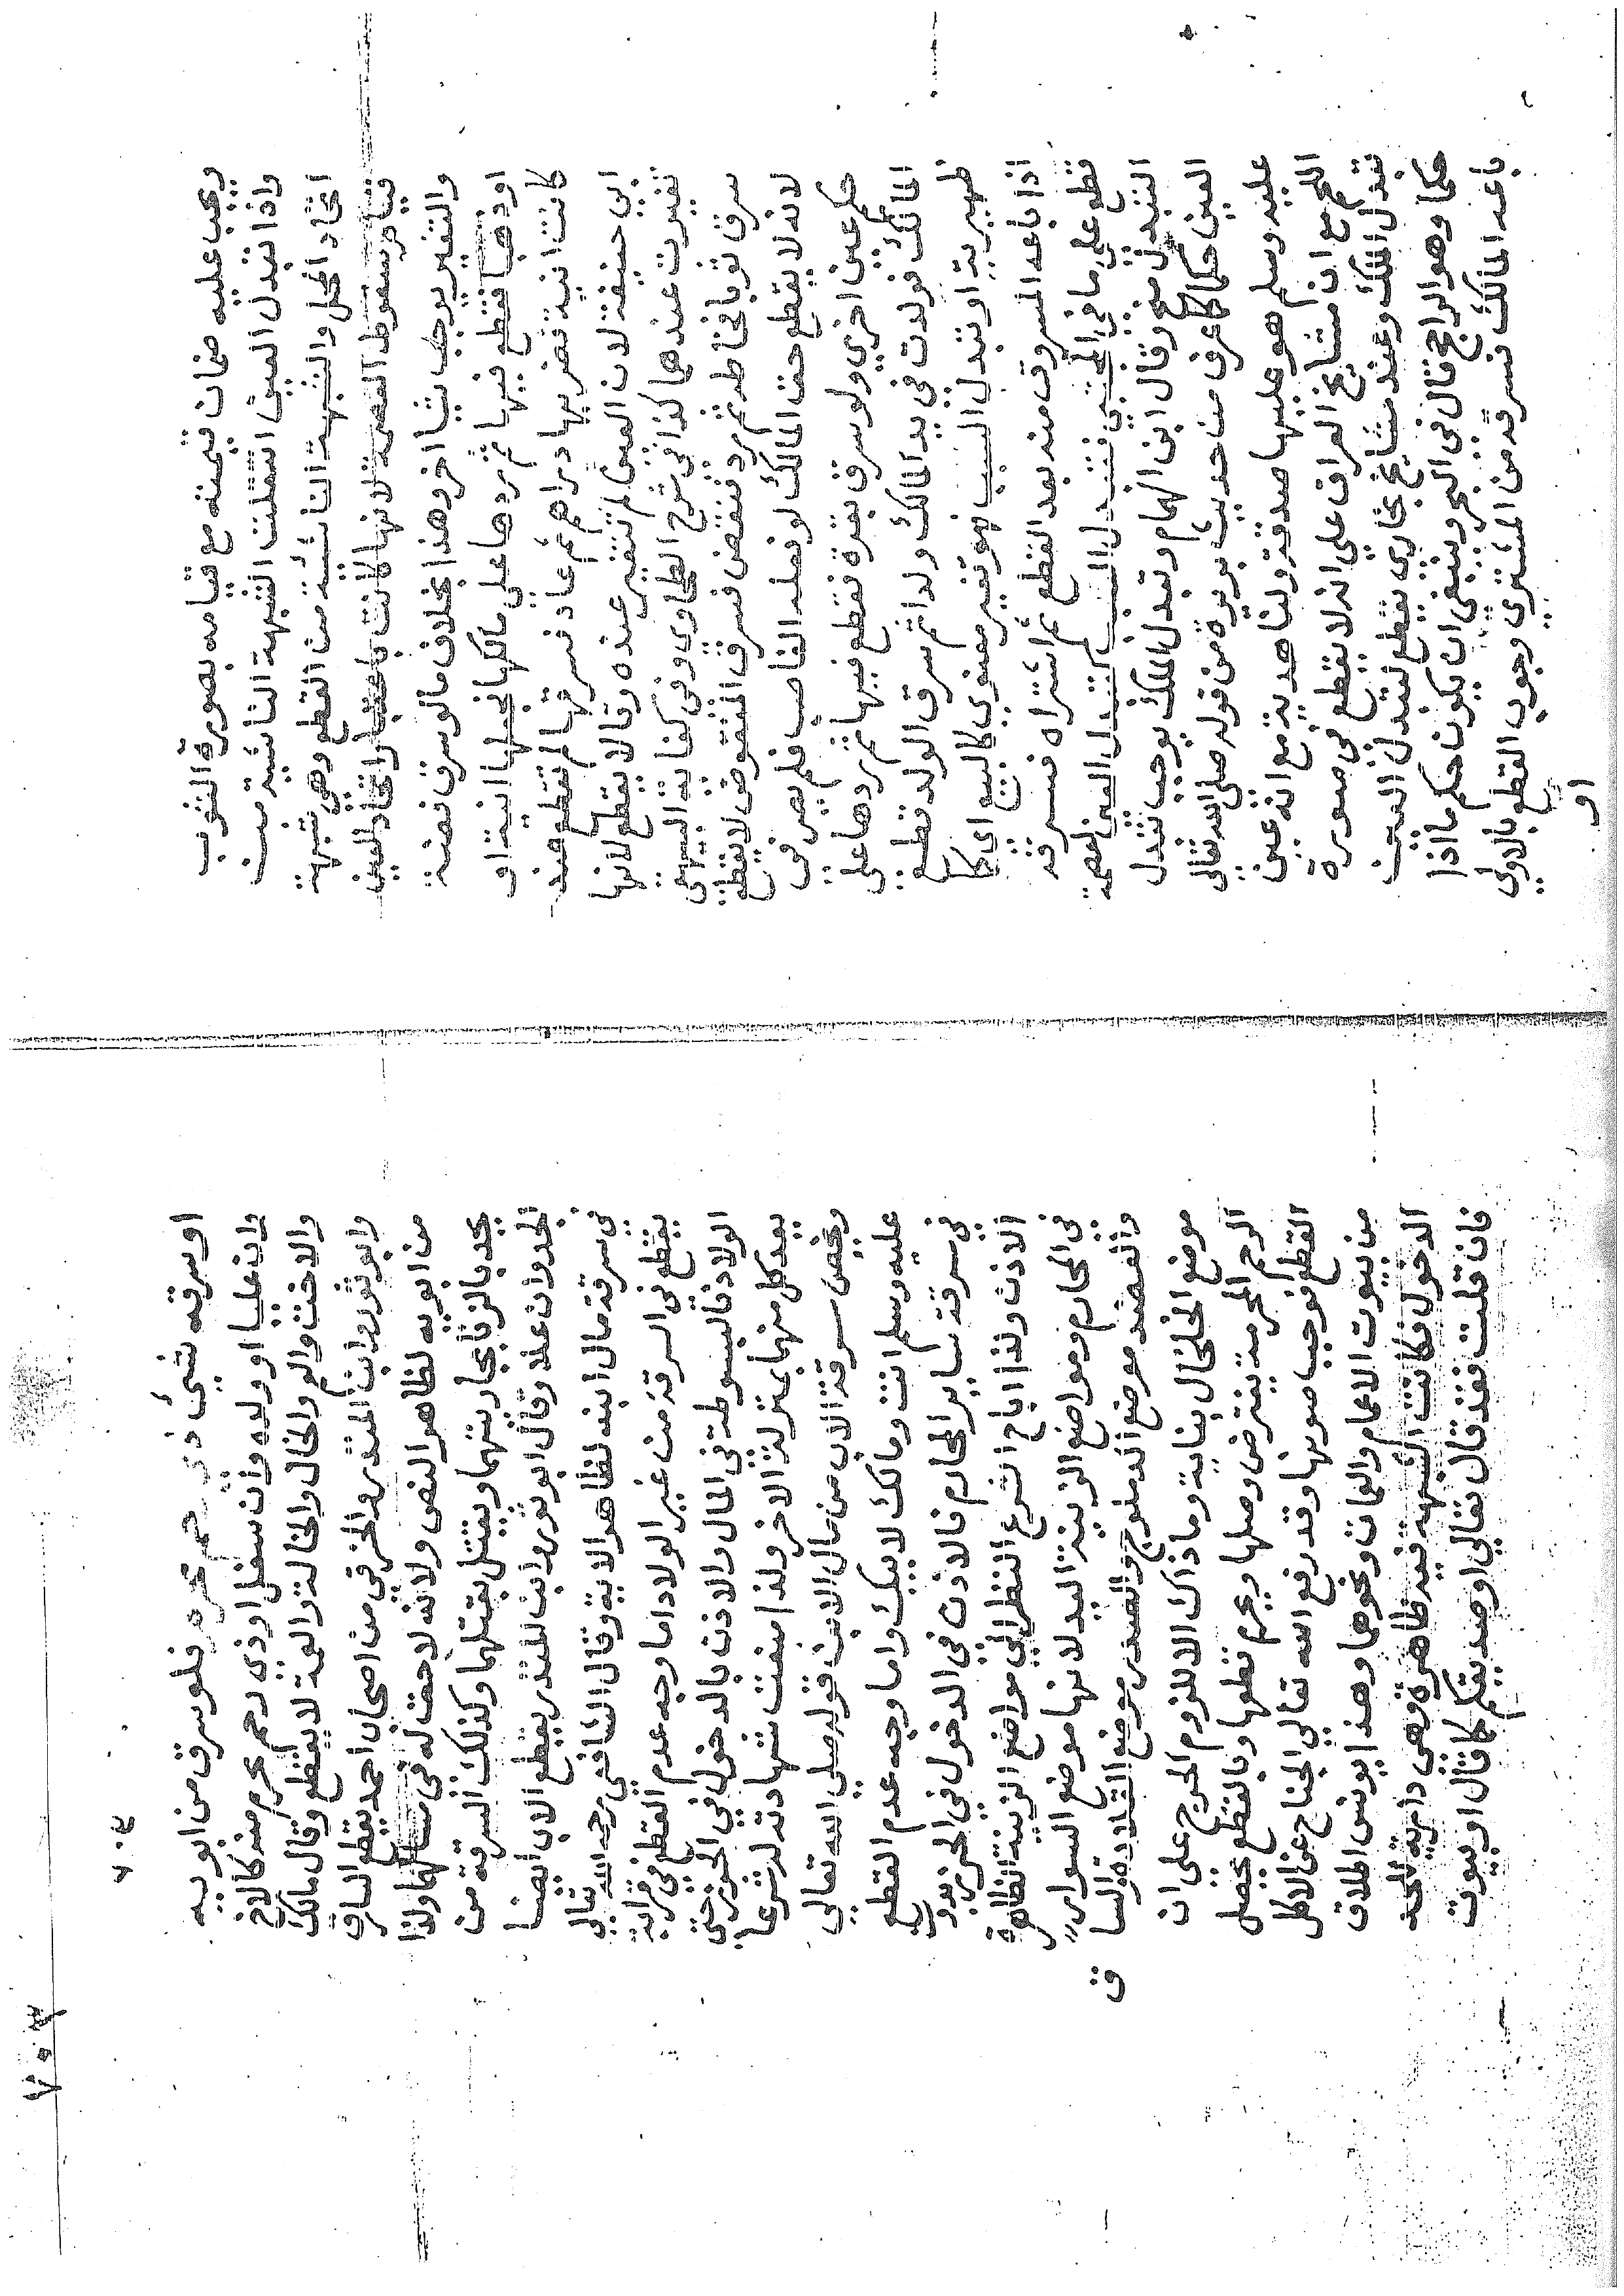 ويجب عليه ضمان قيمته مع قيامه بصورة الثوب
واذا تبدل العين انتقلت الشبهة الناشية من
اتحاد المحل والشبهة الناشئة من القطع وهي شبهة
قيام سقوط العصمة لانها كانت باعتبار اتحاد العين
والتغير يوجب شيأ اخر وهذا بخلاف ما لو سرق فضة
او ذهبا فقطع فيها ثم ردها على مالكها فجعلها انية او
كانت انية فضربها دراهم ثم عاد فسرقها لم تقطع عند
ابي حنيفة لان العين لم تتغير عنده وقالا يقطع لانها
تغيرت عندهما كذا في شرح الطحاوي وفي كفاية البيهقي
سرق ثوبا فخاطه ثم رد فنقض فسرق المنقوض لا يقطع
لانه لا يقطع حق المالك لو فعله الغاصب فلم يصر في
حكم عين اخري ولو سرق بقرة فقطع فيها ثم ردها على
المالك فولدت في يد المالك ولدا ثم سرق الولد قطع
ظهيرية او تبدل السبب فهو تغير معنوي كالبيع اي كما
اذا باعه المسروق منه بعد القطع ثم اشتراه فسرقه
قطع على ما في المجتبي فتبدل السبب كتبدل العين لعصمة
التبدل منع وقال ابن الهمام وتبدل الملك يوجب تبدل
العين حكما كما عرف من حديث بريرة من قوله صلى الله تعالى
عليه وسلم هو عليها صدقة ولنا هدية مع انه عين
اللحم مع ان مشايخ العراق على انه لا يقطع في صورة
تبدل الملك وعند مشايخ بخاري يقطع لتبدل العين
حكما وهو الراجح قال في البحر وينبغي ان يكون حكم ما اذا
باعه المالك فسرقه من المشتري وجوب القطع بالاولى
او
٧٠٣
٦٠٤
او سرقه شئ ذي رحم محرم فلو سرق من ابويه
وان عليا او ولده وان سفل او ذي رحم محرم منه كالاخ
والاخت والعم والخال والخالة والعمة لا يقطع وقال مالك
وابو ثور وابن المنذر والخرقي من اصحاب احمد يقطع السارق
من ابويه لظاهر النص ولانه لا حق له في مالهما ولذا
يحد بالزنا بجاريتهما ويقتل بقتلهما وكذلك السرقة من
الجد وان علا وقال ابو ثور وابن المنذر يقطع الاب ايضا
في سرقة مال ابنه لظاهر الاية وقال الشافعي رحمه الله تعالى
يقطع في السرقة من غير الولاد اما وجه عدم القطع في قرابة
الولاد فالبسوطة في المال والاذن بالدخول في الحرز حتى
يعد كل منهما بمنزلة الاخر ولذا منعت شهادته له شرعا
ويخص سرقة الاب من مال الابن قوله صلى الله تعالى
عليه وسلم انت ومالك لابيك واما وجه عدم القطع
في سرقة ساير المحارم فالاذن في الدخول في الحرز بدون
الاذن ولذا اباح الشرع النظر الي مواضع الزينة الظاهرة
في المحارم ومواضع الزينة اليد لانها موضع السوار
والعضد موضع الدملوج والصدر موضع القلادة والسا
ق
موضع الخلخال بنانة وما ذاك الا للزوم الحرج على ان
الرحم المحرمة يفترض وصلها ويحرم قطعها وبالقطع يحصل
القطع فوجب صونها وقد رفع الله تعالي الجناح عن الاكل
من بيوت الاعمام والعمات ونحوهما وهذا يونس اطلاق
الدخول فكانت الشبهة فيه ظاهرة وهي دارية للحد
فان قلت فقد قال تعالي او صديقكم كما قال او بيوت